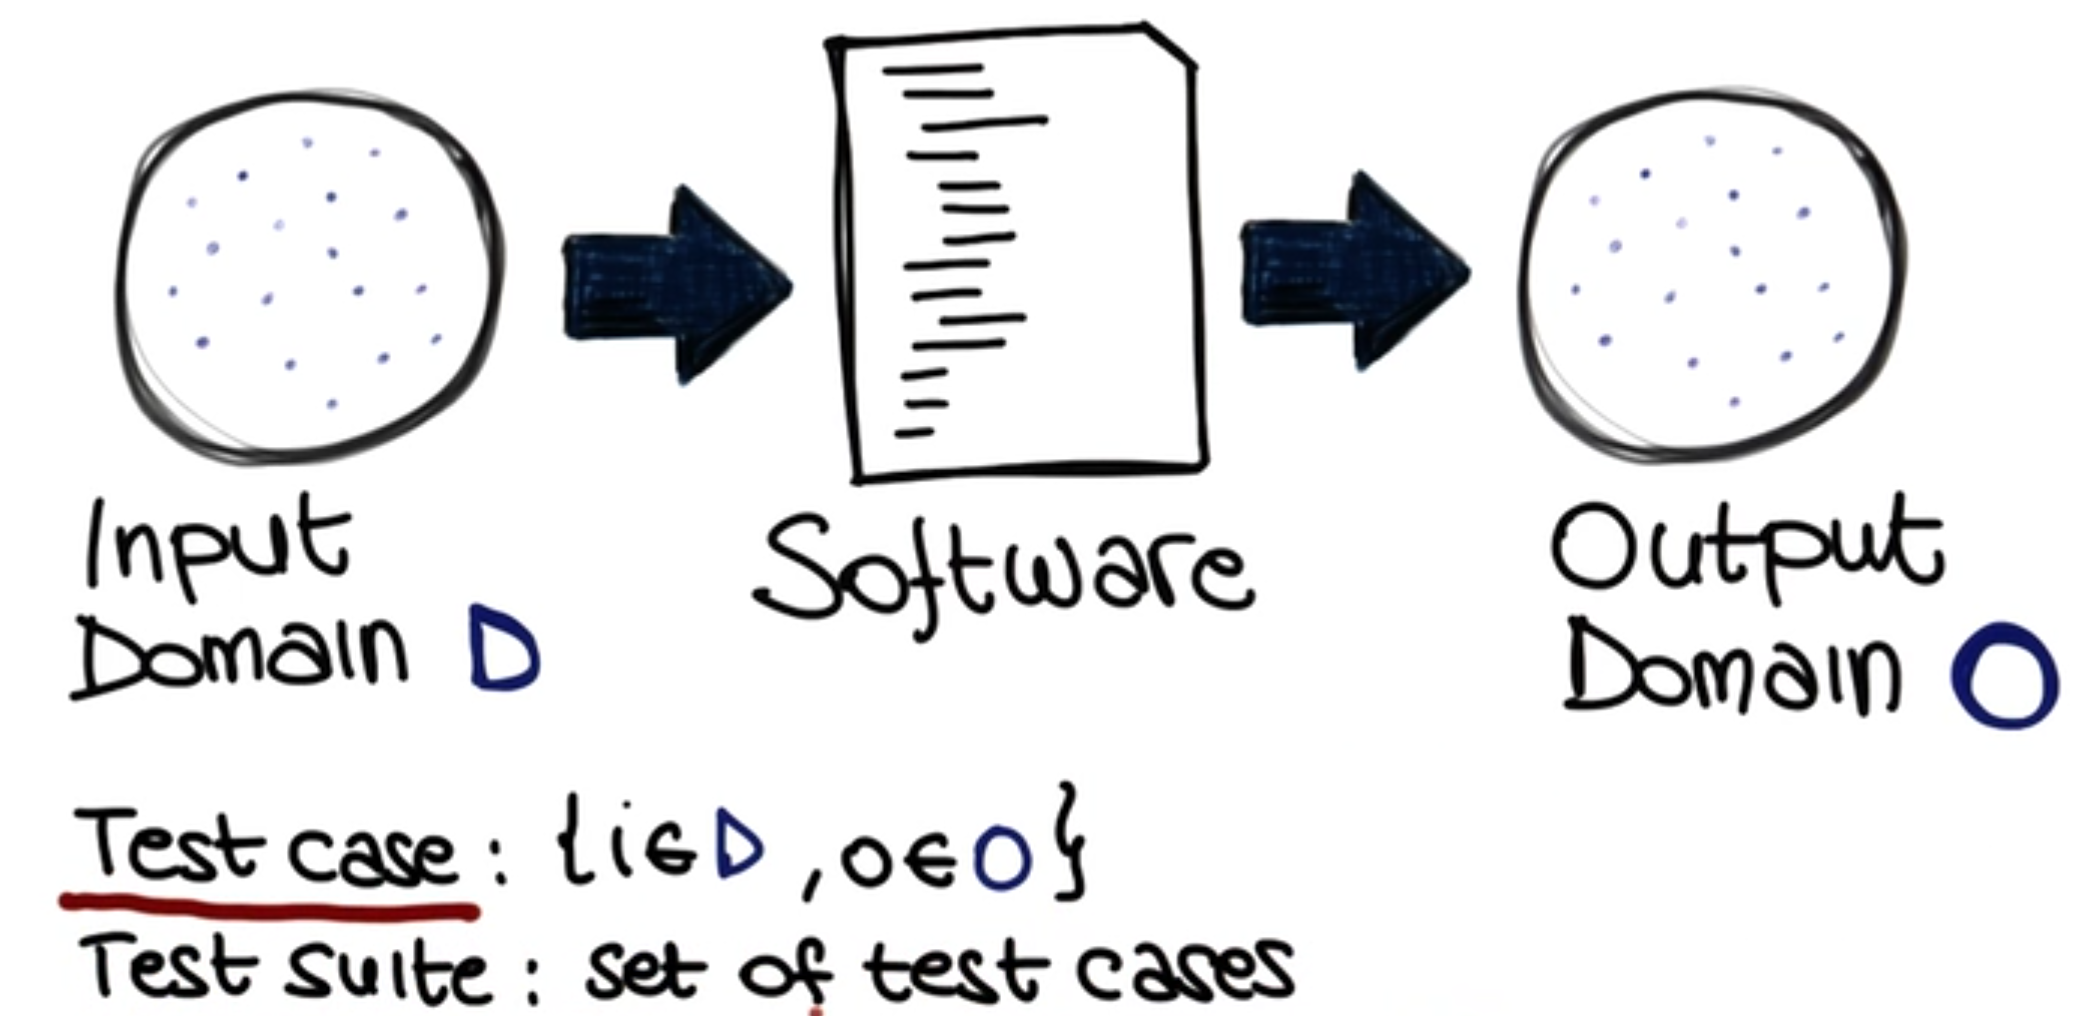 Input
Domain D
Software
Output
Domain O
Test case: {i∈D, o∈O}
Test suite: set of test cases